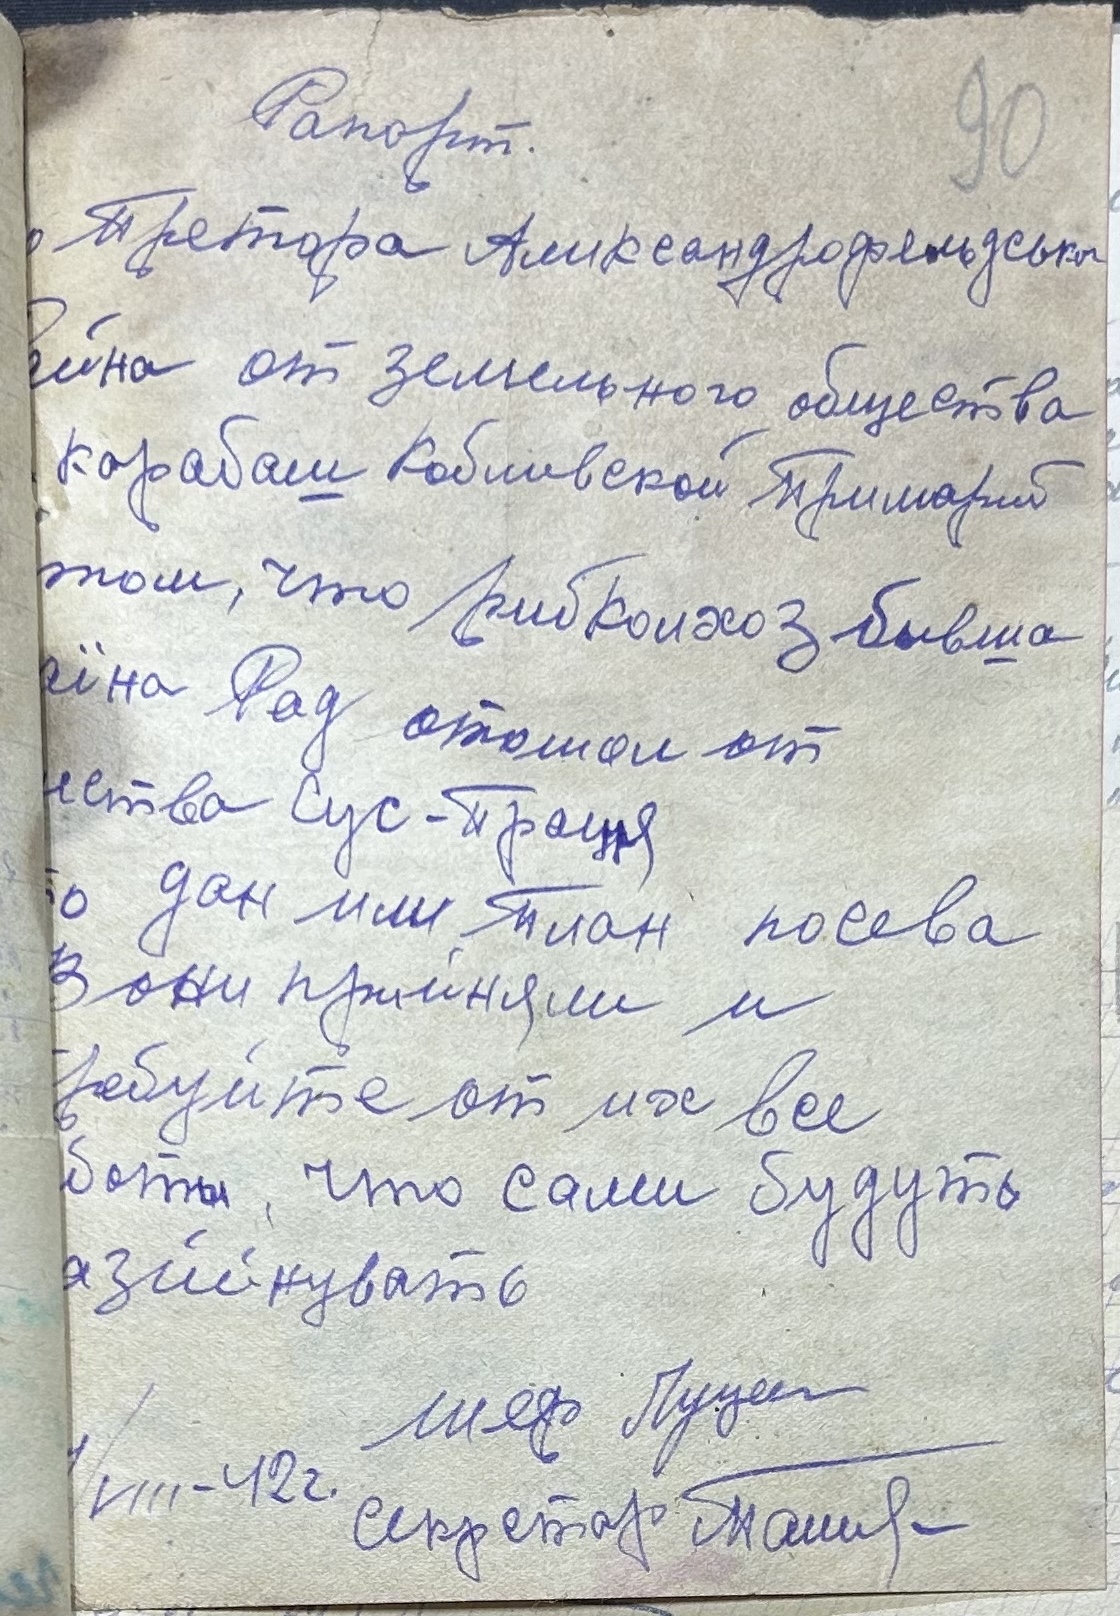 Рапорт.
90
о Претора Александрофельдськ
айна от земельного общества
Карабаш Кобливской Примарий
том, что рибколхоз бывша
аїна Рад отошол от
ества Сус-Праця
то дан или План посева
З они прийняли и
ребуйте от их все
боты, что сами будуть
азійнувать
шеф Луцен
/VIII-42г.
секретар